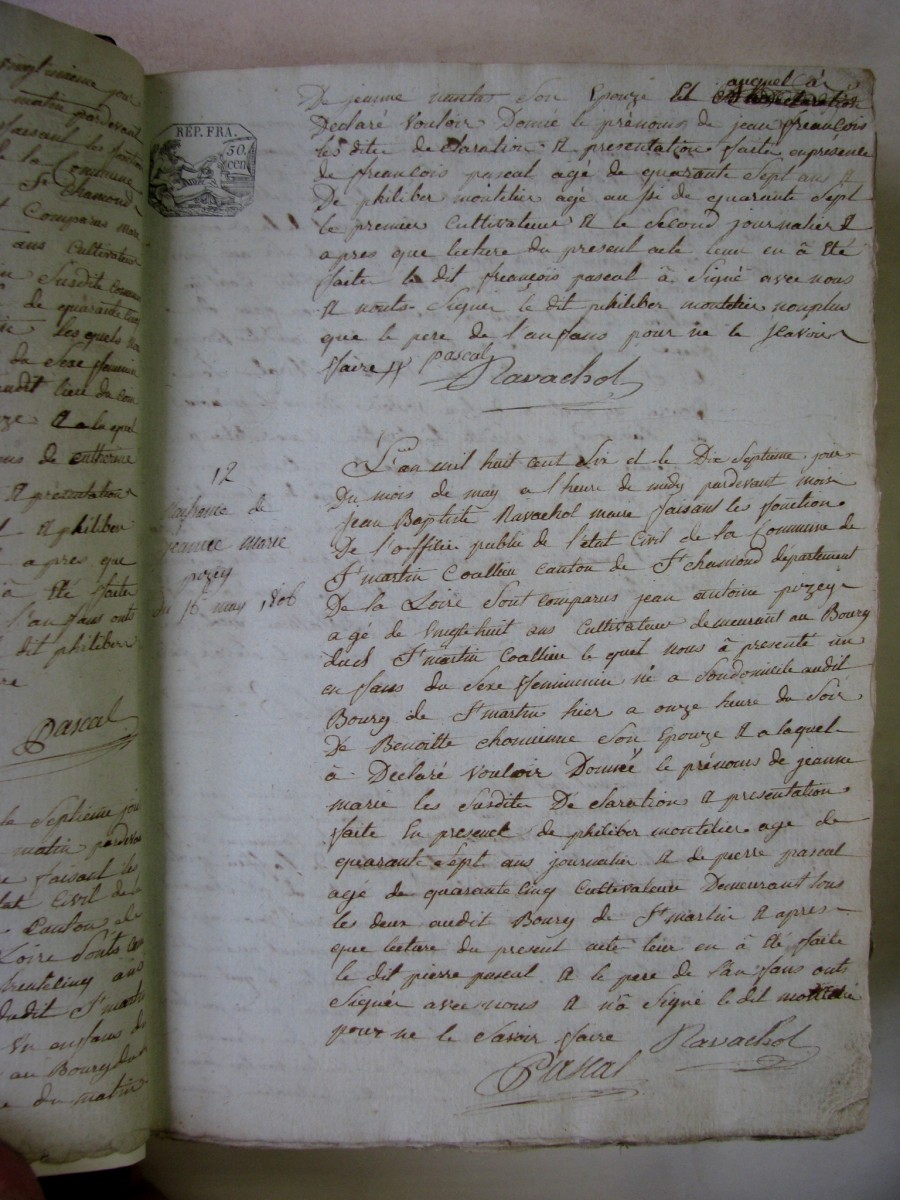 RÉP. FRA.
50.
cen
De jeanne nanta Son Epouze Et auquel à
Declaré vouloir Donné le prénoms de jean freançois
les dites declaration & presentation faites en presence
de freançois pascal agé de quarante Sept ans &
De philiber montelier agé au Si de quarante Sept
le premier Cultivateur & le Second journalier &
apres que lecture du present acte leur en à Eté
faite le dit freançois pascal à Signé avec nous
& nonts Signer le dit philiber montelier nonplus
que le pere de l'anfans pour ne le Scavoir
faire
pascal
Ravachol
12
jeanne marie
pozey
du 16 may 1806
L'an mil huit cent Six et le Dix Septieme jour
Du mois de may a l'heure de midy pardevant moi
Jean Baptiste Ravachol maire faisant les fonction
De l'officié public de l'etat Civil de la Commune de
St martin Coallieu canton de St chamond département
De la Loire Sont comparus jean antoine pozey
agé de vingt huit ans Cultivateur demeurant au Bourg
dudt St martin Coallieu le quel nous à presenté un
enfans du Sexe feminin né a Sondomicile audit
Bourg de St martin hier a onze heure du Soir
De Benoitte chomienne Son Epouze & a laquel
à Declaré vouloir Donné le prénoms de jeanne
marie les Susdites De claration & presentation
faite En presence de philiber montelier age de
quarante Sept ans journalier & de pierre pascal
age de quarante Cinq Cultivateur Demeurant tous
les deux audit Bourg de St martin & apres
que lecture du present acte leur en à Eté faite
le dit pierre pascal & le pere de l'anfans onts
Signer avec nous & n'à Signé le dit
pour ne le Savoir faire
Ravachol
Pascal
matin
pardevant
faisant les fonction
de la Commune
St chamond
Comparus
ans Cultivateur
Susdite
de quarante
les quels
du Sexe feminin
& a la quel
de catherine
& presentation
& philiber
apres que
à Eté faite
l'anfans onts
dit philiber
Pascal
Septieme
matin pardevant
faisant les
Civil de la
Canton de
Loire Sonts
trentecinq ans
dudit St martin
un enfans du
au Bourg
du matin